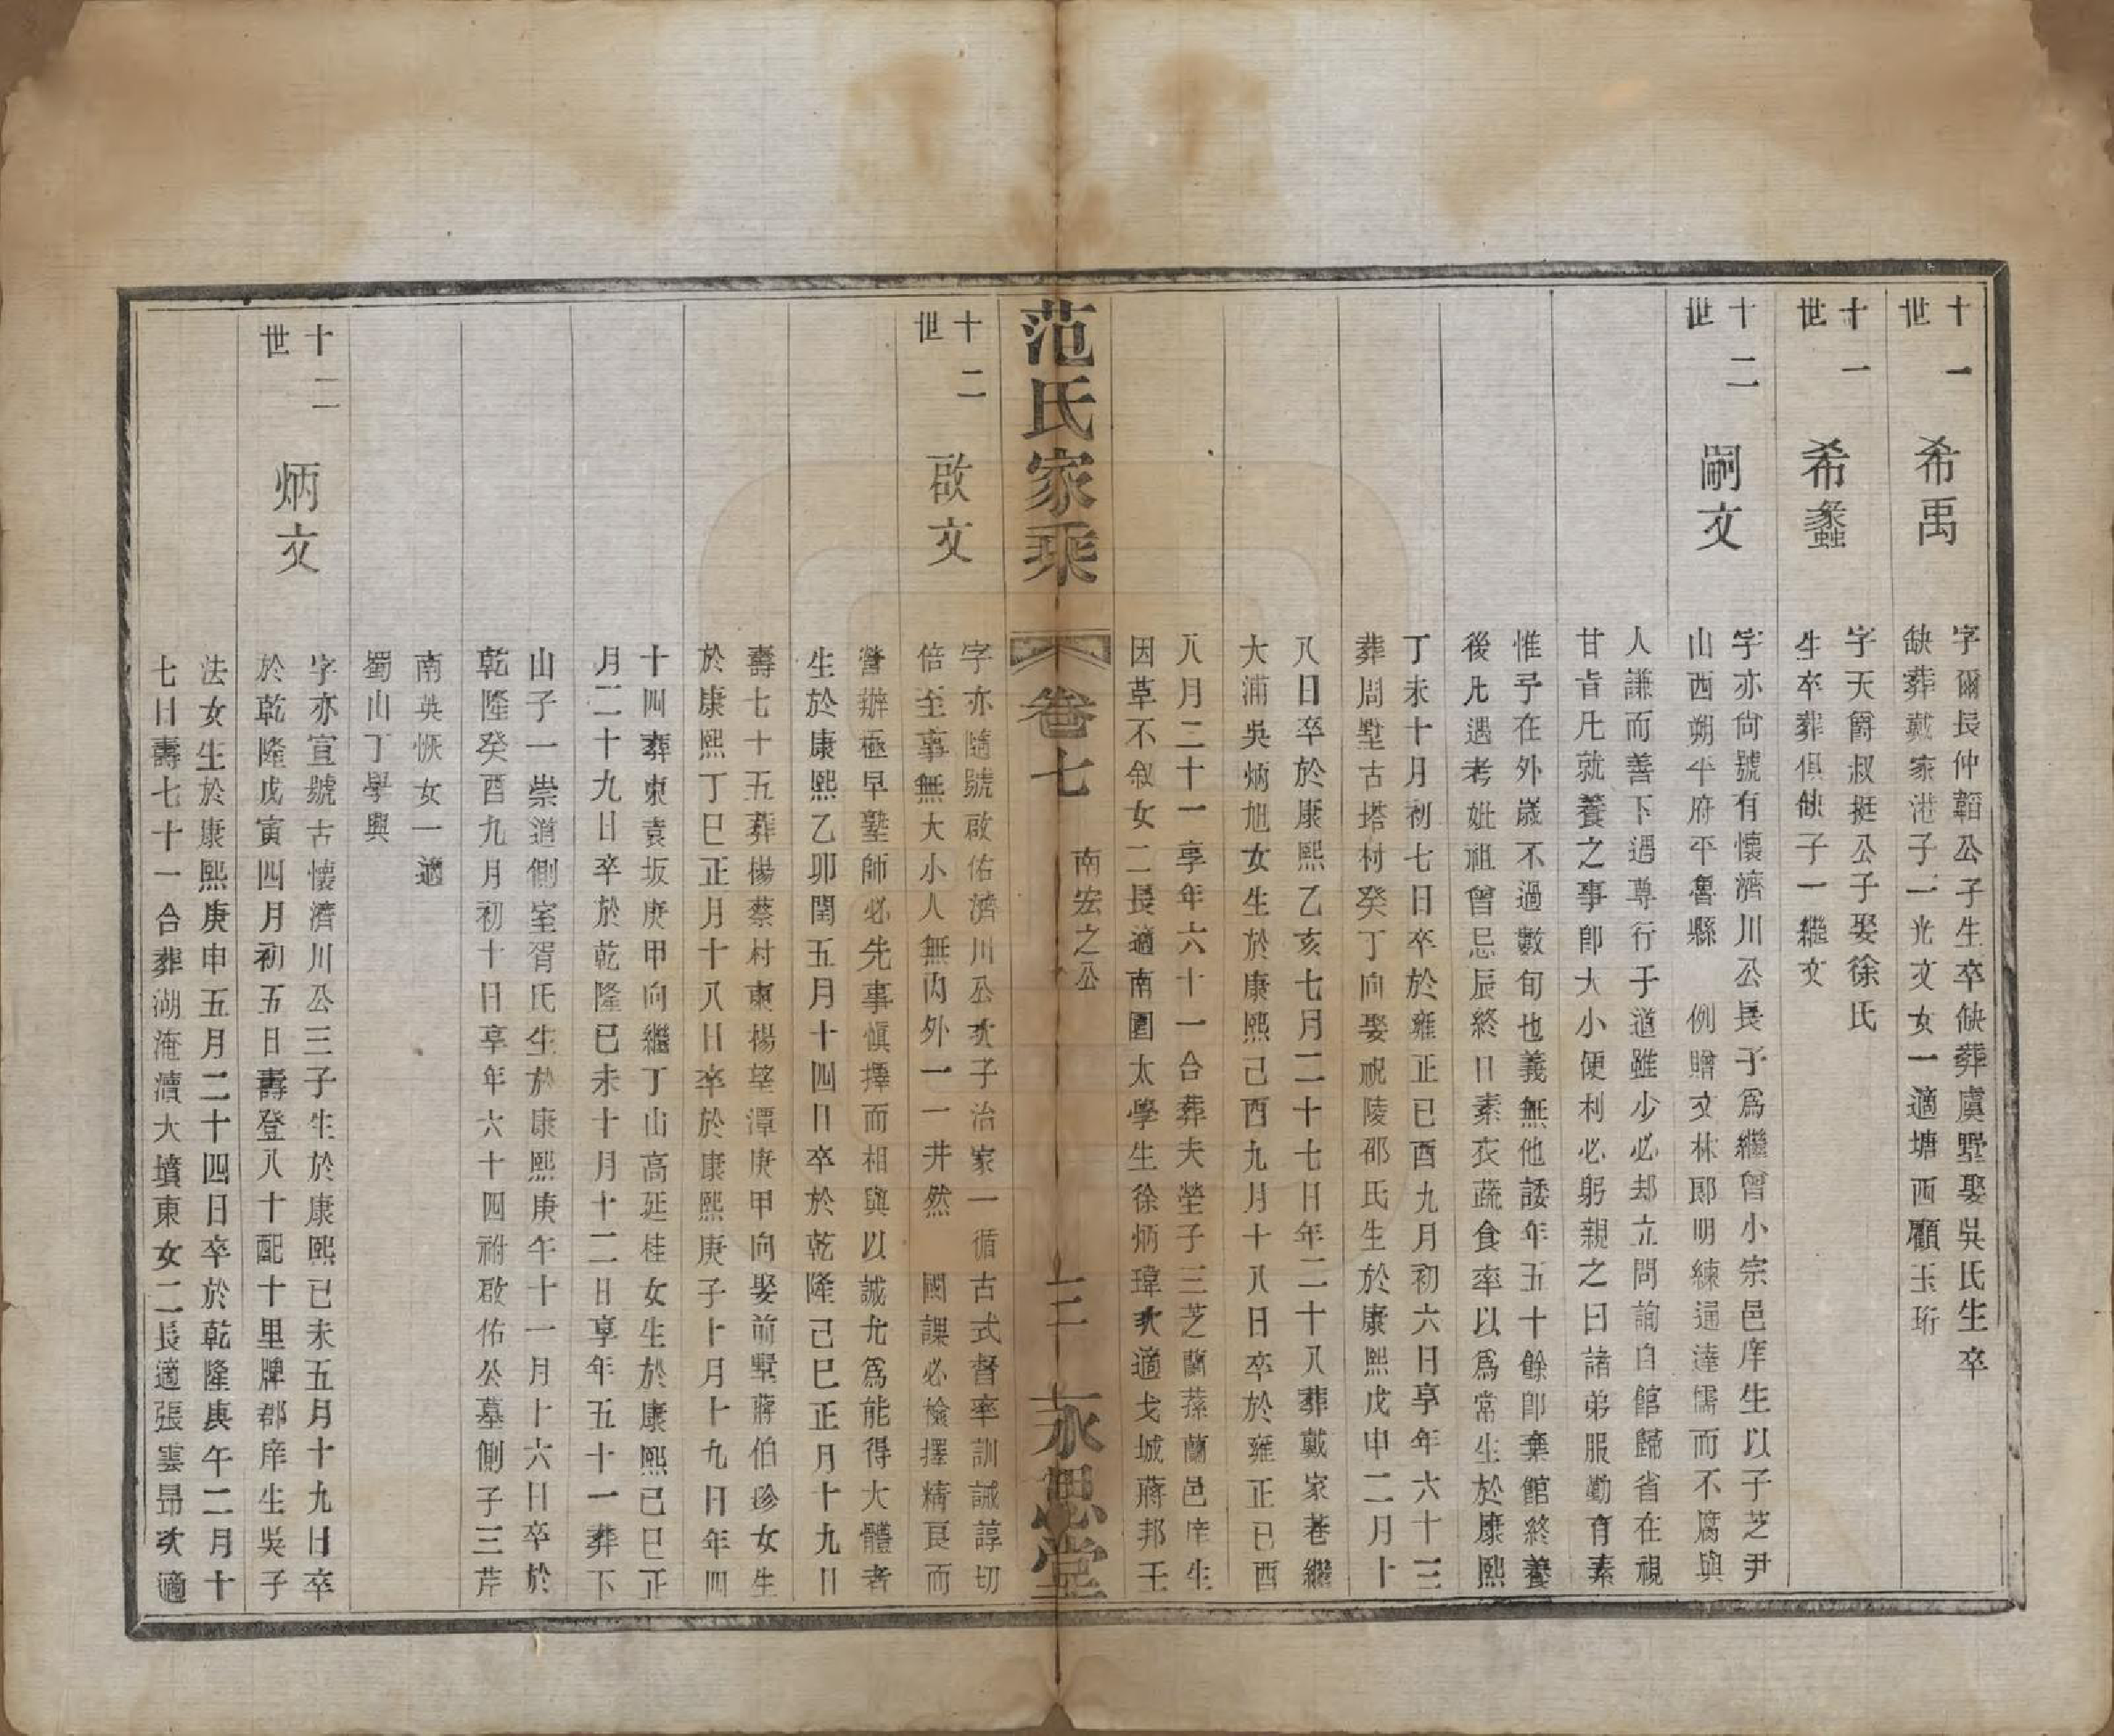 十一世 希禹
字爾長仲韜公子生卒缺葬虞墅娶吳氏生卒
缺葬戴家港子一光文女一適塘西顧玉珩
十一世 希蠡
字天爵叔挺公子娶徐氏
生卒葬俱缺子一繼文
十二世 嗣文
字亦尙號有懷濟川公長子爲繼曾小宗邑庠生以子芝尹
山西朔平府平魯縣 例贈文林郎明練通達儒而不腐與
人謙而善下遇尊行于道雖少必却立問詢自館歸省在視
甘旨凡就養之事卽大小便利必躬親之日諸弟服勤有素
惟予在外歲不過數旬也義無他諉年五十餘卽棄館終養
後凡遇考妣祖曾忌辰終日素衣蔬食率以爲常生於康熙
丁未十月初七日卒於雍正己酉九月初六日享年六十三
葬周墅古塔村癸丁向娶祝陵邵氏生於康熙戊申二月十
八日卒於康熙乙亥七月二十七日年二十八葬戴家巷繼
大浦吳炳旭女生於康熙己酉九月十八日卒於雍正己酉
八月二十一享年六十一合葬夫塋子三芝蘭蓀蘭邑庠生
因草不叙女二長適南圍太學生徐炳瑋次適戈城蔣邦王
范氏家乘 卷七 南宏之公 三 永思堂
十二世 啟文
字亦隨號啟佑濟川公次子治家一循古式督率訓誡諄切
倍至事無大小人無內外一一井然 國課必檢擇精良而
營辦極早塾師必先事慎擇而相與以誠尤爲能得大體者
生於康熙乙卯閏五月十四日卒於乾隆己巳正月十九日
壽七十五葬楊蔡村東楊笙潭庚甲向娶前墅蔣伯珍女生
於康熙丁巳正月十八日卒於康熙庚子十月十九日年四
十四葬東袁坂庚甲向繼丁山高延桂女生於康熙己巳正
月二十九日卒於乾隆己未十月十二日享年五十一葬下
山子一崇道側室胥氏生於康熙庚午十一月十六日卒於
乾隆癸酉九月初十日享年六十四祔啟佑公墓側子三芹
南英恢女一適
蜀山丁學興
十二世 炳文
字亦宣號古懷濟川公三子生於康熙己未五月十九日卒
於乾隆戊寅四月初五日壽登八十配十里牌郡庠生吳子
法女生於康熙庚申五月二十四日卒於乾隆庚午二月十
七日壽七十一合葬湖㳷瀆大墳東女二長適張雲昻次適